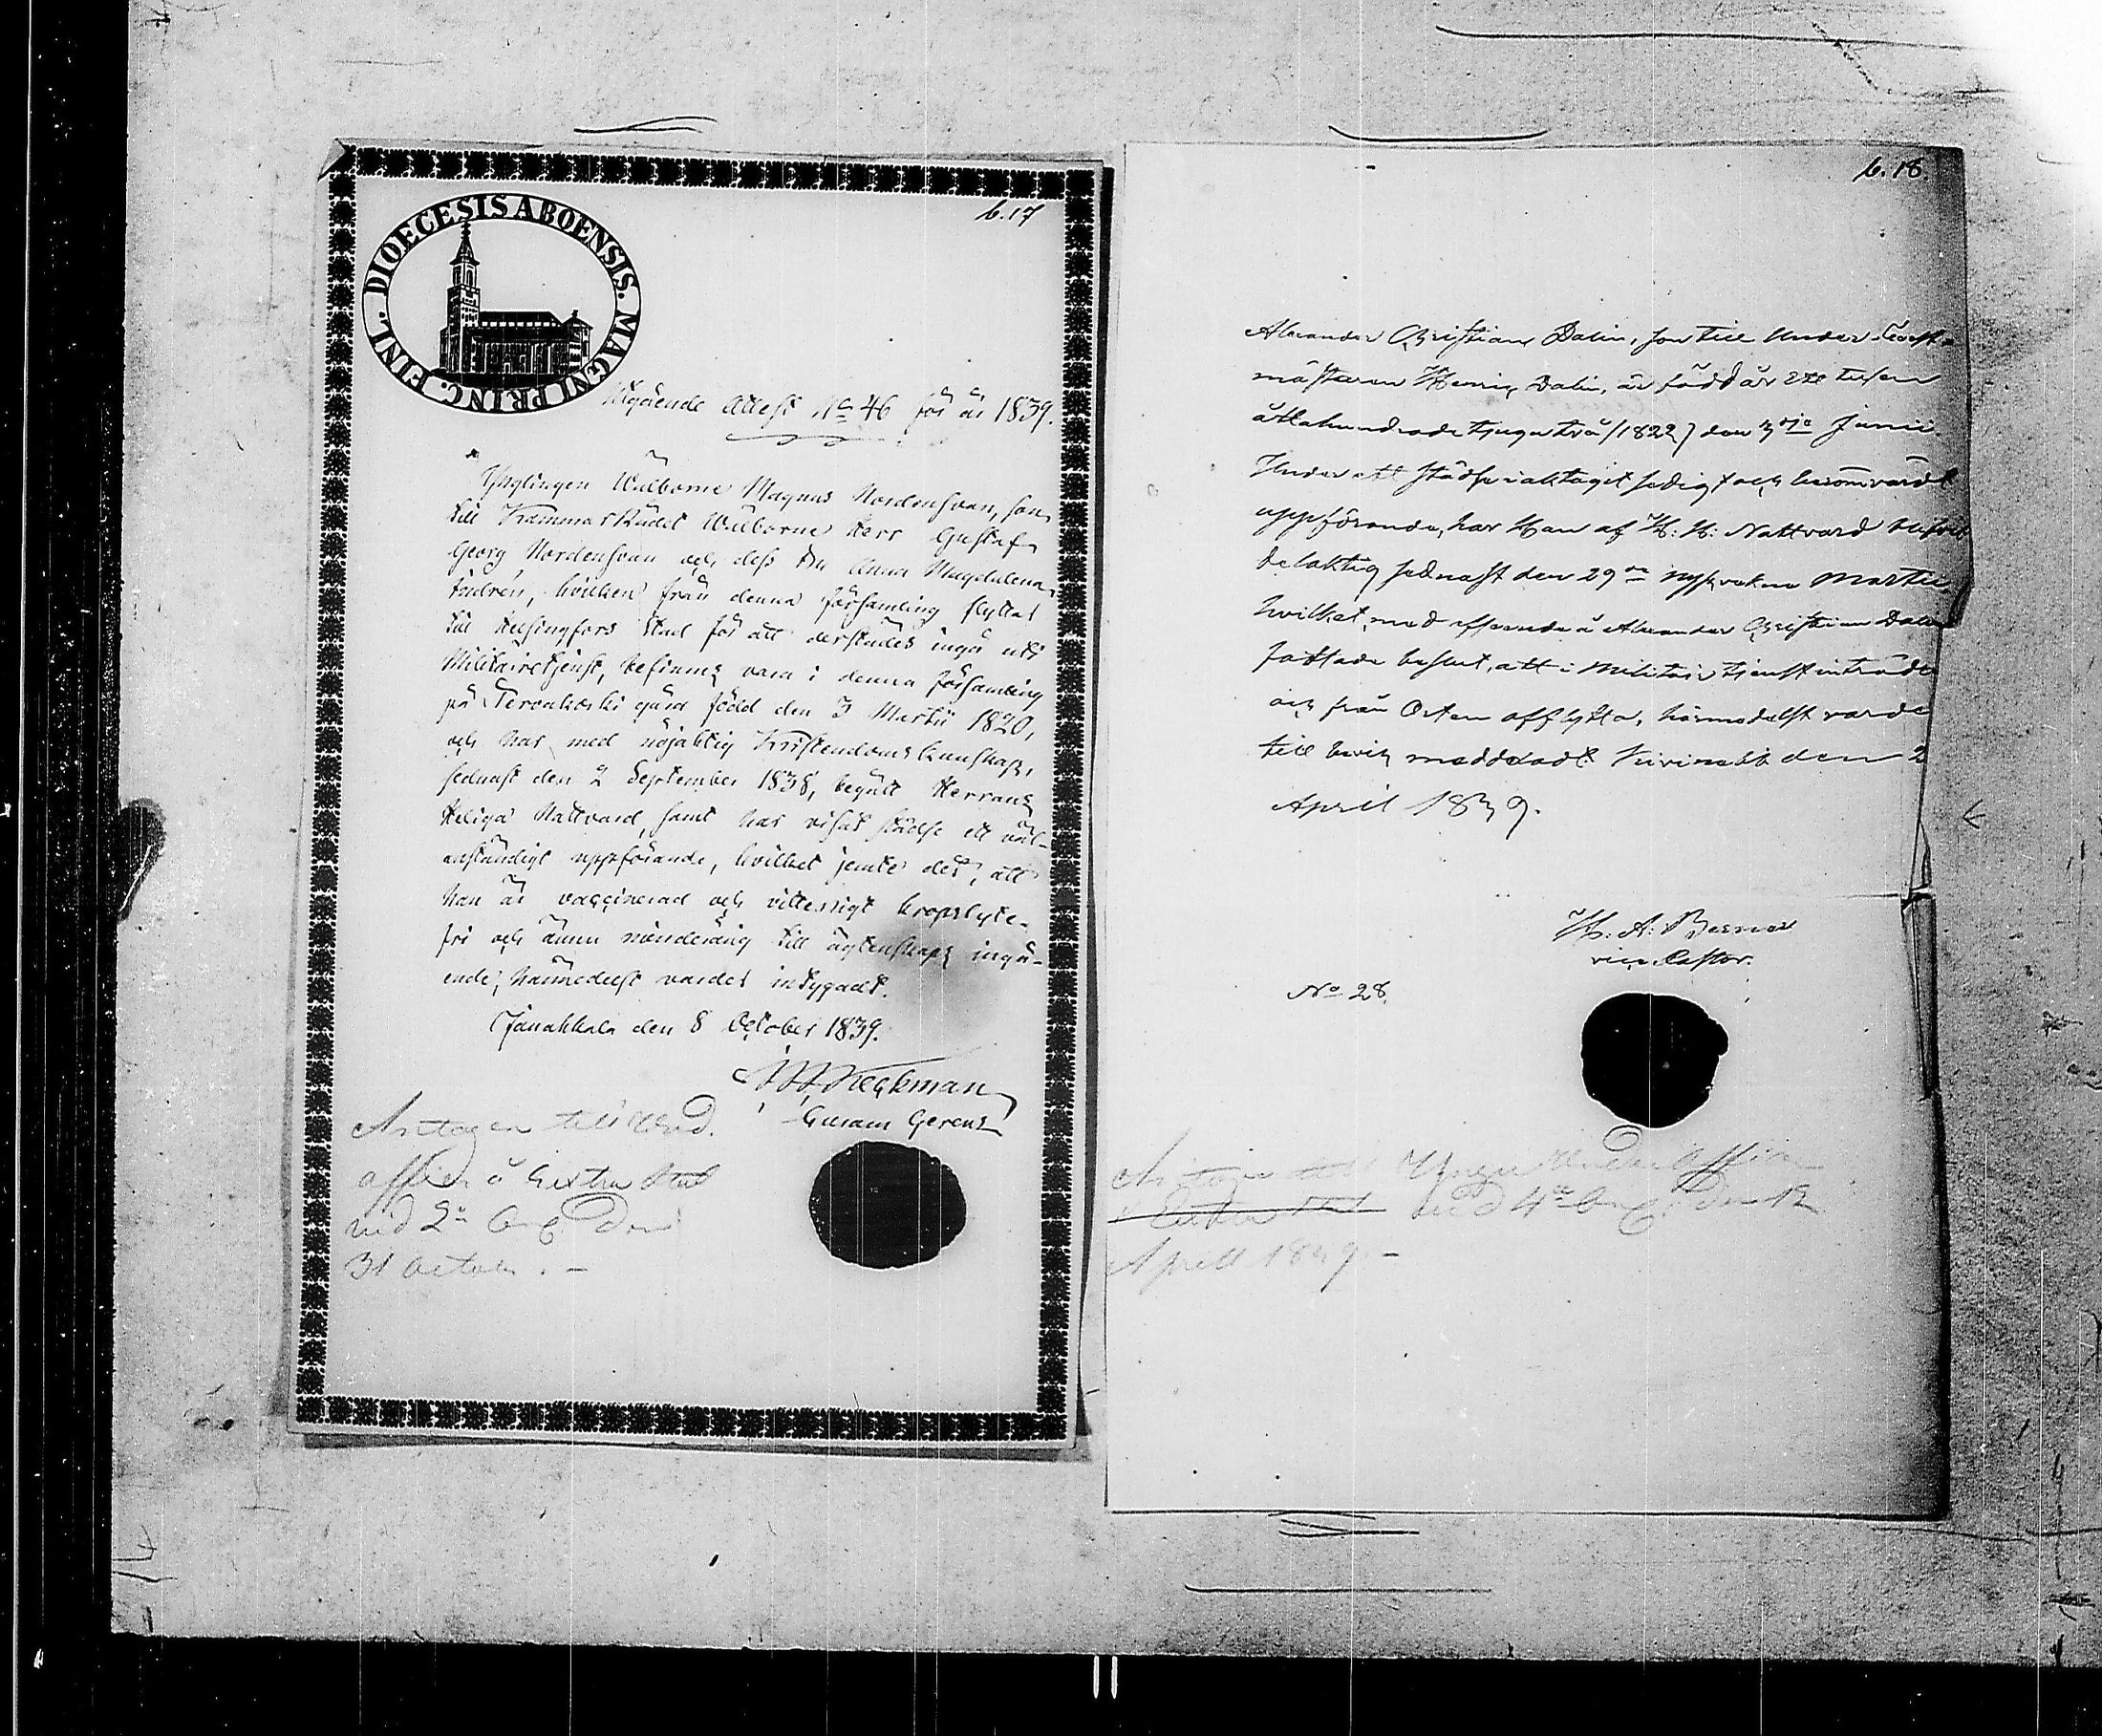 b.17
DIOECESIS ABOENSIS. MAGNI PRINC. FINL.
Utgående Attest No 46 för år 1839.
Ynglingen Wälborne Magnus Nordensvan, son
till KammarRådet Wälborne Herr Gustaf
Georg Nordensvan och dess Fru Anna Magdalena
hvilken från denna församling flyttat
till Helsingfors Stad för att derstädes ingå uti
Militairetjenst, befinnes vara i denna församling
på Tervakoski gård född den 3 Martii 1820,
och har med nöjaktig Kristendoms kunskap,
sednast den 2 September 1838, begått Herrans
Heliga Nattvard, samt har visat städse ett väl-
anständigt uppförande, hvilket jemte det, att
han är vaccinerad och vitterligt kropslyte-
fri och ännu till ägtenskaps ingå-
ende, härmedelst vardet intygadt.
Janakkala den 8 October 1839.
Heckman
Curam Gerens
Antagen till Und.
officer å Extra Stat
vid 2a Comp. den
31 October. –
b.18.
Alexander Christian Dalin, son till Under-
mästaren Henric Dalin, är född år Ett tusen
åttahundrade tjugutvå (1822) den 3dje Junii.
Under ett städse iakttaget sedigt och berömvärdt
uppförande, har Han af H: H: Nattvard blifvit
delaktig sednast den 29de Martii,
hvilket, med afseende å Alexander Christian Dalins
fattade beslut, att i Militair tjenst inträda
och från Orten afflytta, härmedelst varder
till bevis meddeladt. den 2
April 1839.
H: A:
vice Pastor.
No 28.
Antagen till Yngre Under Officer
vid 4de Comp. den 12
April 1839. –